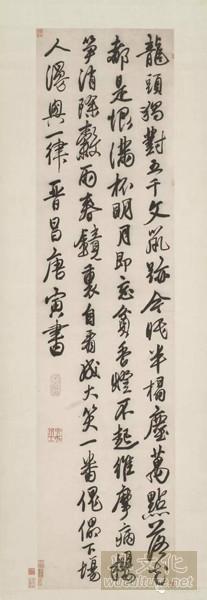 龍頭獨對五千文鼠跡今眠半榻塵萬點落花
都是恨滿杯明月即忘貧香燈不起維摩病櫻
筍消除穀雨春鏡裏自看成大笑一番傀儡下場
人漫興一律晉昌唐寅書
文化